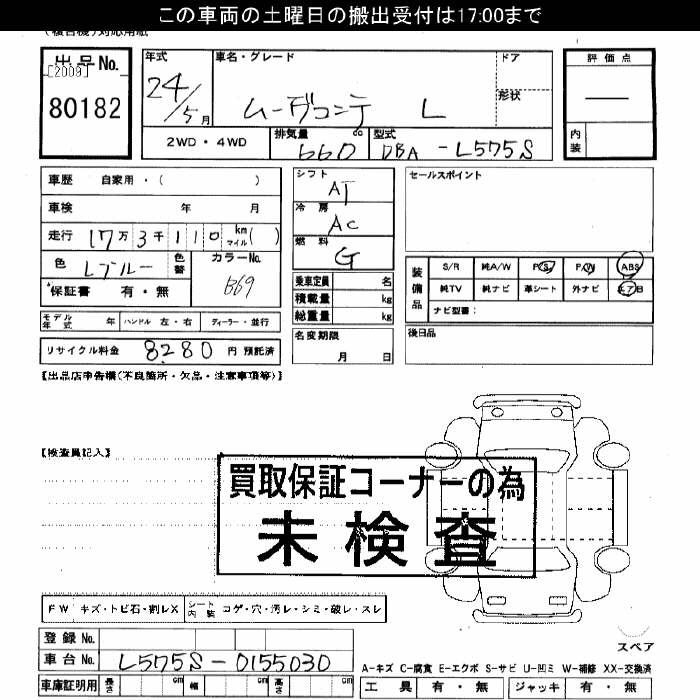 この車両の土曜日の搬出受付は17:00まで
(複合機)対応用紙
出品No.
[2009]
80182
年式
24/5月
車名・グレード
ムーヴコンテ L
ドア
形状
評価点
内装
2WD・4WD
排気量
660 cc
型式
DBA-L575S
車歴 自家用・( )
車検 年 月
走行 17万3千110 km マイル( )
色 Lブルー
色替
カラーNo.
B69
保証書 有・無
シフト
AT
冷房
AC
燃料
G
乗車定員 名
積載量 kg
総重量 kg
セールスポイント
装備品
S/R 純A/W P/S P/W ABS
純TV 純ナビ 革シート 外ナビ エアB
ナビ型番:
モデル年式 年 ハンドル 左・右 ディーラー・並行
リサイクル料金 8280 円 預託済
名変期限
月 日
後日品
【出品店申告欄(不良箇所・欠品・注意事項等)】
【検査員記入】
買取保証コーナーの為
未検査
FW キズ・トビ石・割レX シート内装 コゲ・穴・汚レ・シミ・破レ・スレ
登録No.
車台No. L575S-0155030
車庫証明用 長さ cm 幅 cm 高さ cm
スペア
A-キズ C-腐食 E-エクボ S-サビ U-凹ミ W-補修 XX-交換済
工具 有・無 ジャッキ 有・無